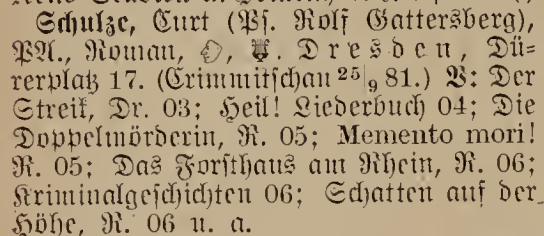 Schulze, Curt (Ps. Rolf Gattersberg),
PA., Roman, Dresden, Dü=
rerplatz 17. (Crimmitschau 25|9 81.) V: Der
Streik, Dr. 03; Heil! Liederbuch 04; Die
Doppelmörderin, R. 05; Memento mori!
R. 05; Das Forsthaus am Rhein, R. 06;
Kriminalgeschichten 06; Schatten auf der
Höhe, R. 06 u. a.